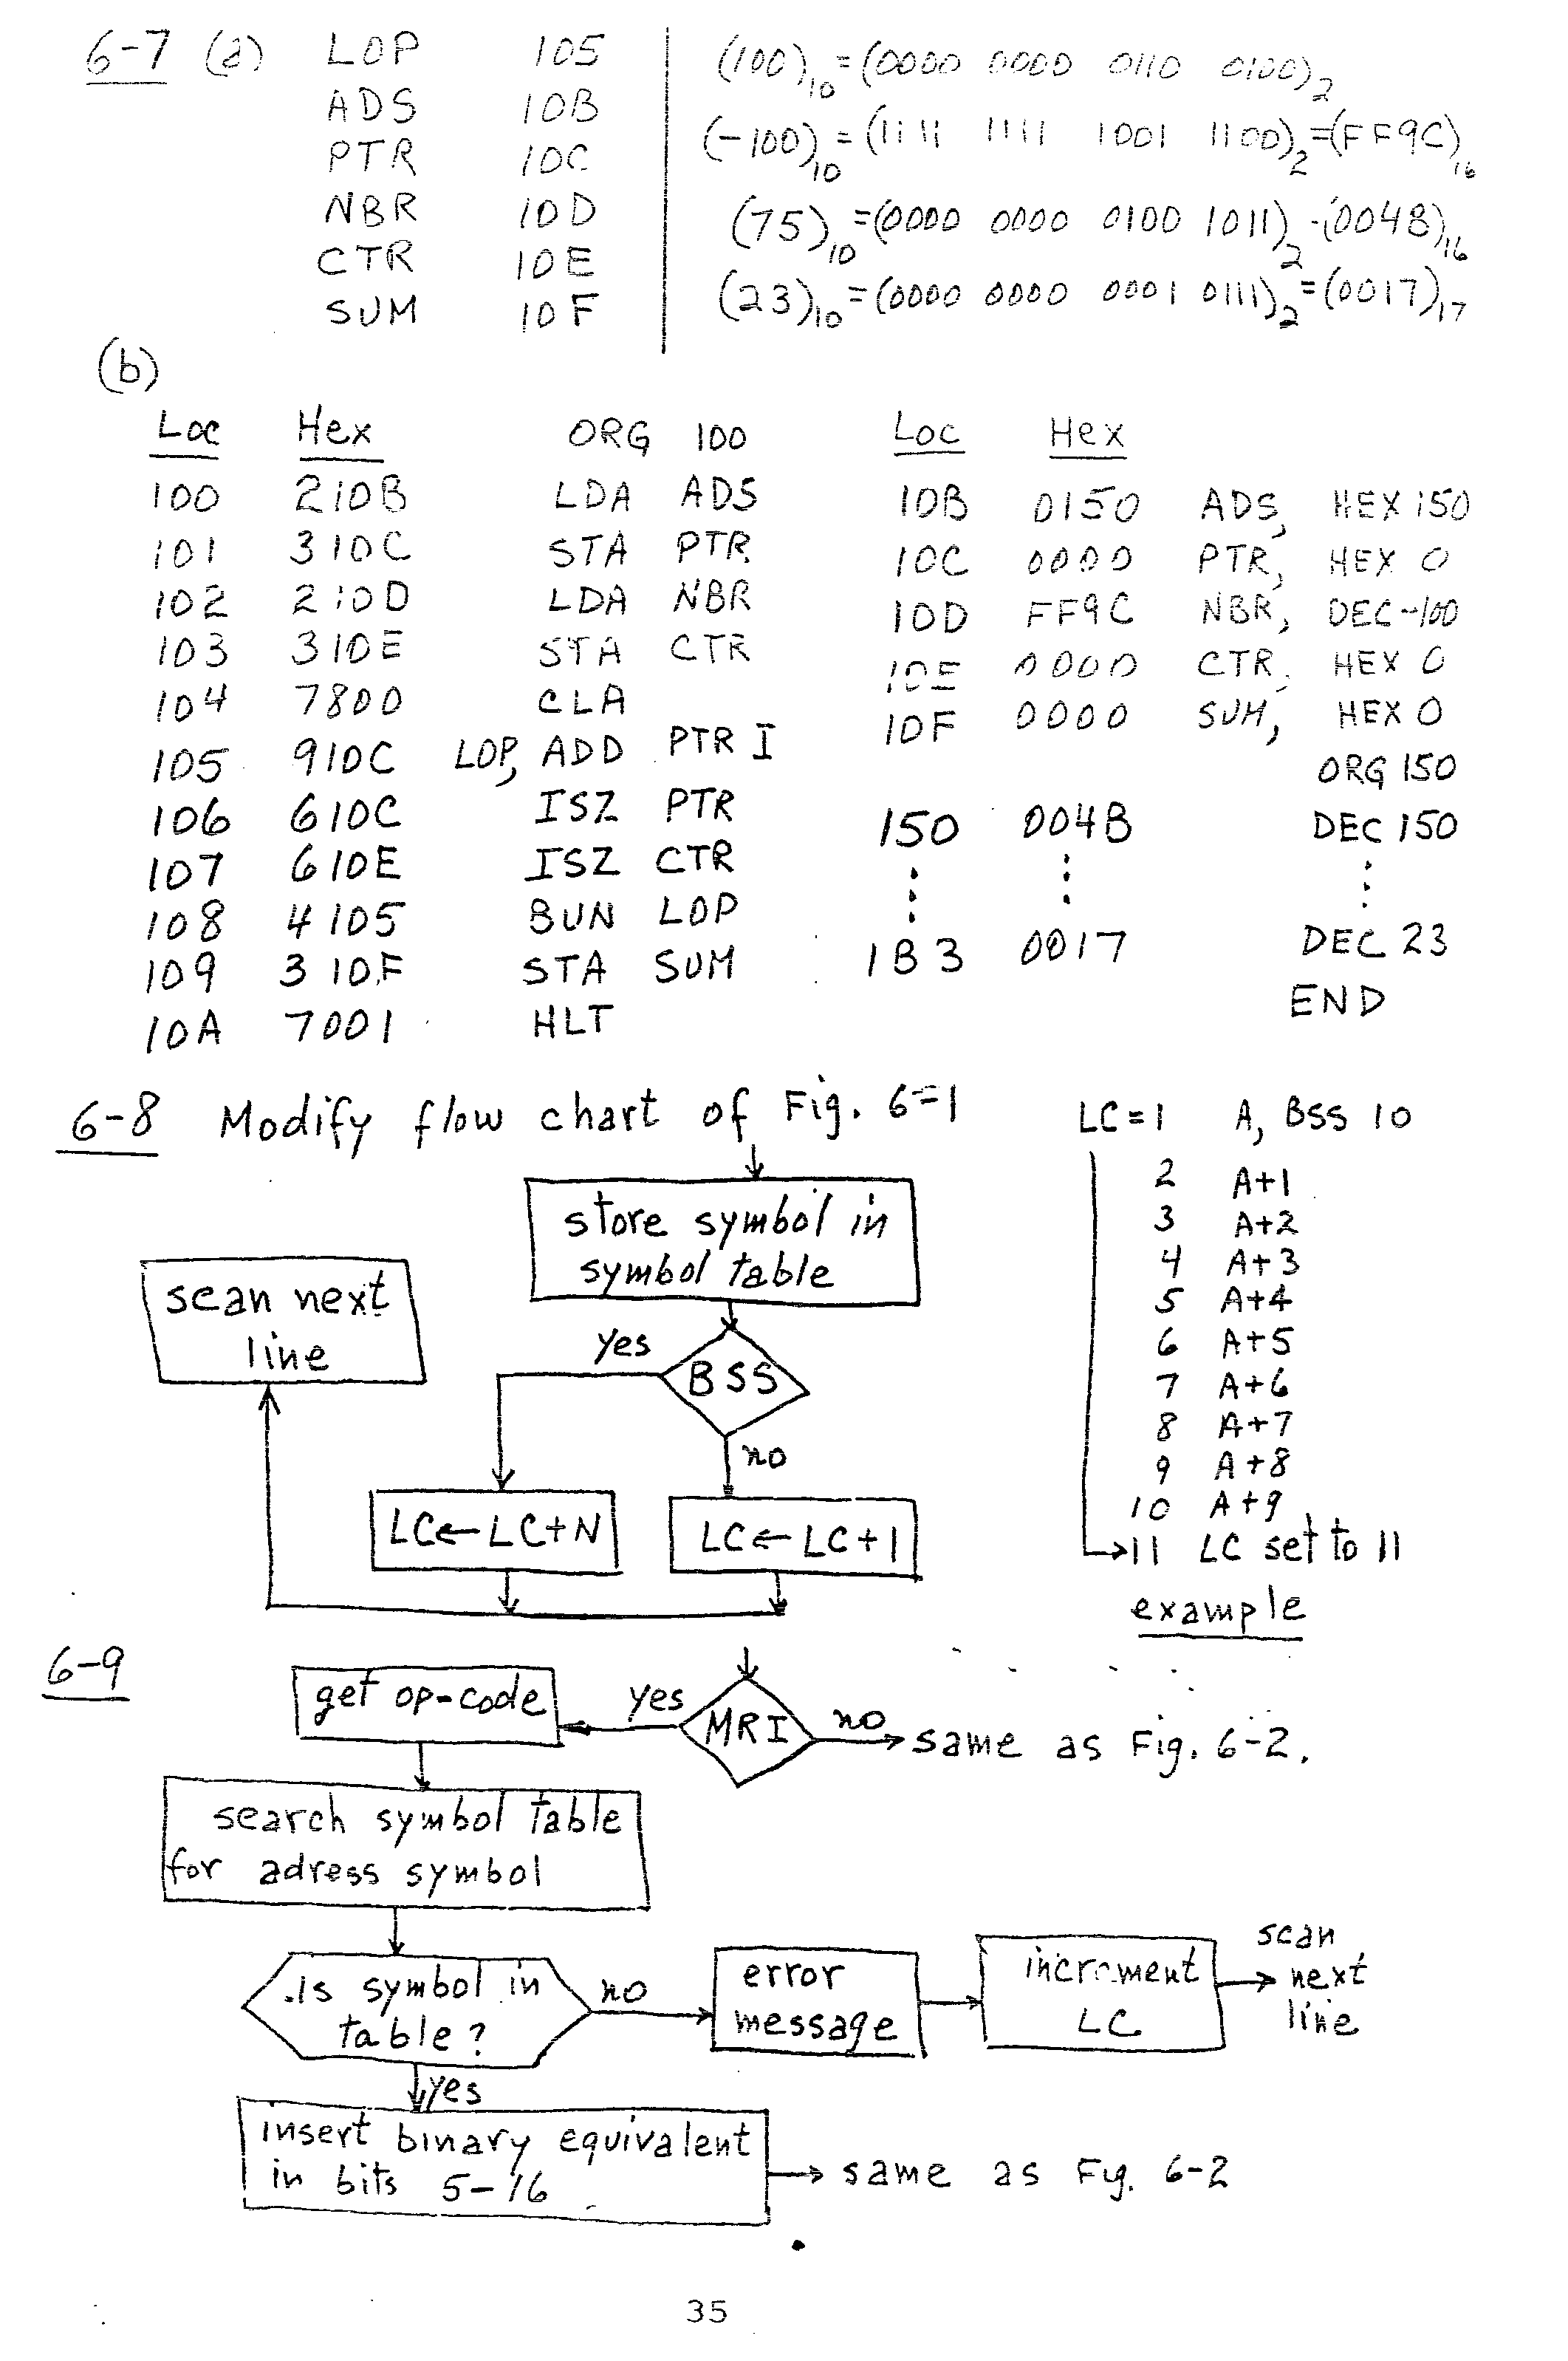 6-7 (a) LOP 105 (100)10 = (0000 0000 0110 0100)2
ADS 10B (-100)10 = (1111 1111 1001 1100)2 = (FF9C)16
PTR 10C
NBR 10D (75)10 = (0000 0000 0100 1011)2 - (004B)16
CTR 10E
SUM 10F (23)10 = (0000 0000 0001 0111)2 = (0017)17
(b)
Loc Hex ORG 100
100 210B LDA ADS
101 310C STA PTR
102 210D LDA NBR
103 310E STA CTR
104 7800 CLA
105 910C LOP, ADD PTR I
106 610C ISZ PTR
107 610E ISZ CTR
108 4105 BUN LOP
109 310F STA SUM
10A 7001 HLT
Loc Hex
10B 0150 ADS, HEX 150
10C 0000 PTR, HEX 0
10D FF9C NBR, DEC-100
10E 0000 CTR, HEX 0
10F 0000 SUM, HEX 0
ORG 150
150 004B DEC 150
1B3 0017 DEC 23
END
6-8 Modify flow chart of Fig. 6-1
store symbol in
symbol table
scan next
line
yes
BSS
no
LC←LC+N
LC←LC+1
LC=1 A, BSS 10
2 A+1
3 A+2
4 A+3
5 A+4
6 A+5
7 A+6
8 A+7
9 A+8
10 A+9
→11 LC set to 11
example
6-9
get op-code yes MRI no → same as Fig. 6-2.
search symbol table
for adress symbol
is symbol in
table?
no
error
message
increment
LC
scan
next
line
yes
insert binary equivalent
in bits 5-16
→ same as Fig. 6-2
35